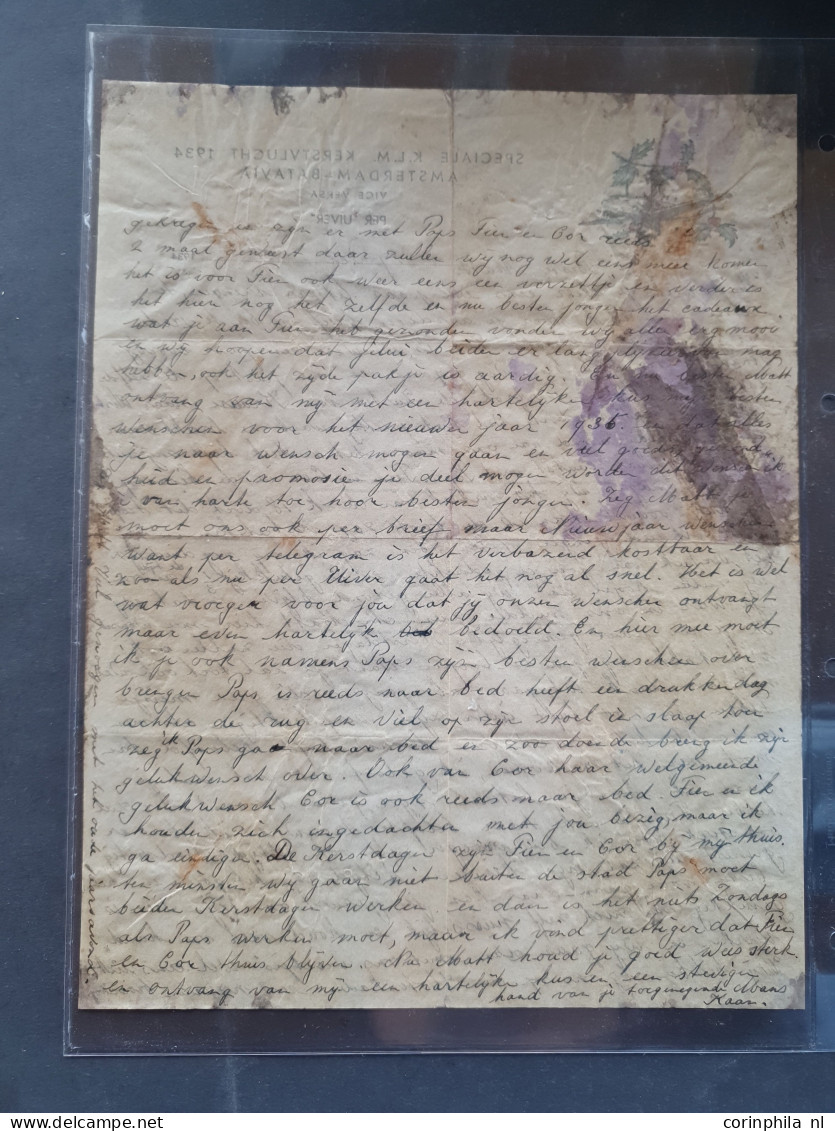 SPECIALE K.L.M. KERSTVLUCHT 1934
AMSTERDAM-BATAVIA
VICE VERSA
PER "UIVER"
gekregen je zijn er met Paps Fien en Cor reeds
2 maal geweest daar zullen wij nog wel eens mee komen
het is voor Fien ook weer eens een verzetje en verder is
het hier nog het zelfde en nu besten jongen het cadeaux
wat je aan Fien het gezonden vonden wij allen erg mooi
en wij hoopen dat jelui beiden er lang plezier van mag
hebben, ook het zijde pakje is aardig. En nu besten Matt
ontvang van mij met een hartelijken kus mijn besten
wenschen voor het nieuwen jaar 1935 en dat alles
je naar wensch mogen gaan en veel goeden gezond
heid en promosie je deel mogen worden dit wensch ik
je van harte toe hoor besten jongen. Zeg Matt je
moet ons ook per brief maar Nieuwjaar wenschen
want per telegram is het verbazend kostbaar en
zoo als nu per Uiver gaat het nog al snel. Het is wel
wat vroeger voor jou dat jij onzen wenschen ontvangt
maar even hartelijk bedoeld. En hier mee moet
ik je ook namens Paps zijn besten wenschen over
brengen Paps is reeds naar bed heeft een drukken dag
achter de rug en viel op zijn stoel in slaap toen
zeg ik Paps ga naar bed en zoo doende breng ik zijn
gelukwensch over. Ook van Cor haar welgemeende
gelukwensch Cor is ook reeds naar bed. Fien en ik
houden zich ingedachten met jou bezig, maar ik
ga eindigen. De Kerstdagen zijn Fien en Cor bij mij thuis.
ten minsten wij gaan niet buiten de stad Paps moet
beiden Kerstdagen werken en dan is het niets Zondags
als Paps werken moet, maar ik vind prettiger dat Fien
en Cor thuis blijven. Nu Matt houd je goed wees sterk
en ontvang van mij een hartelijke kus en een stevigen
hand van je toegenegende Mans
Kaan.
corinphila nl